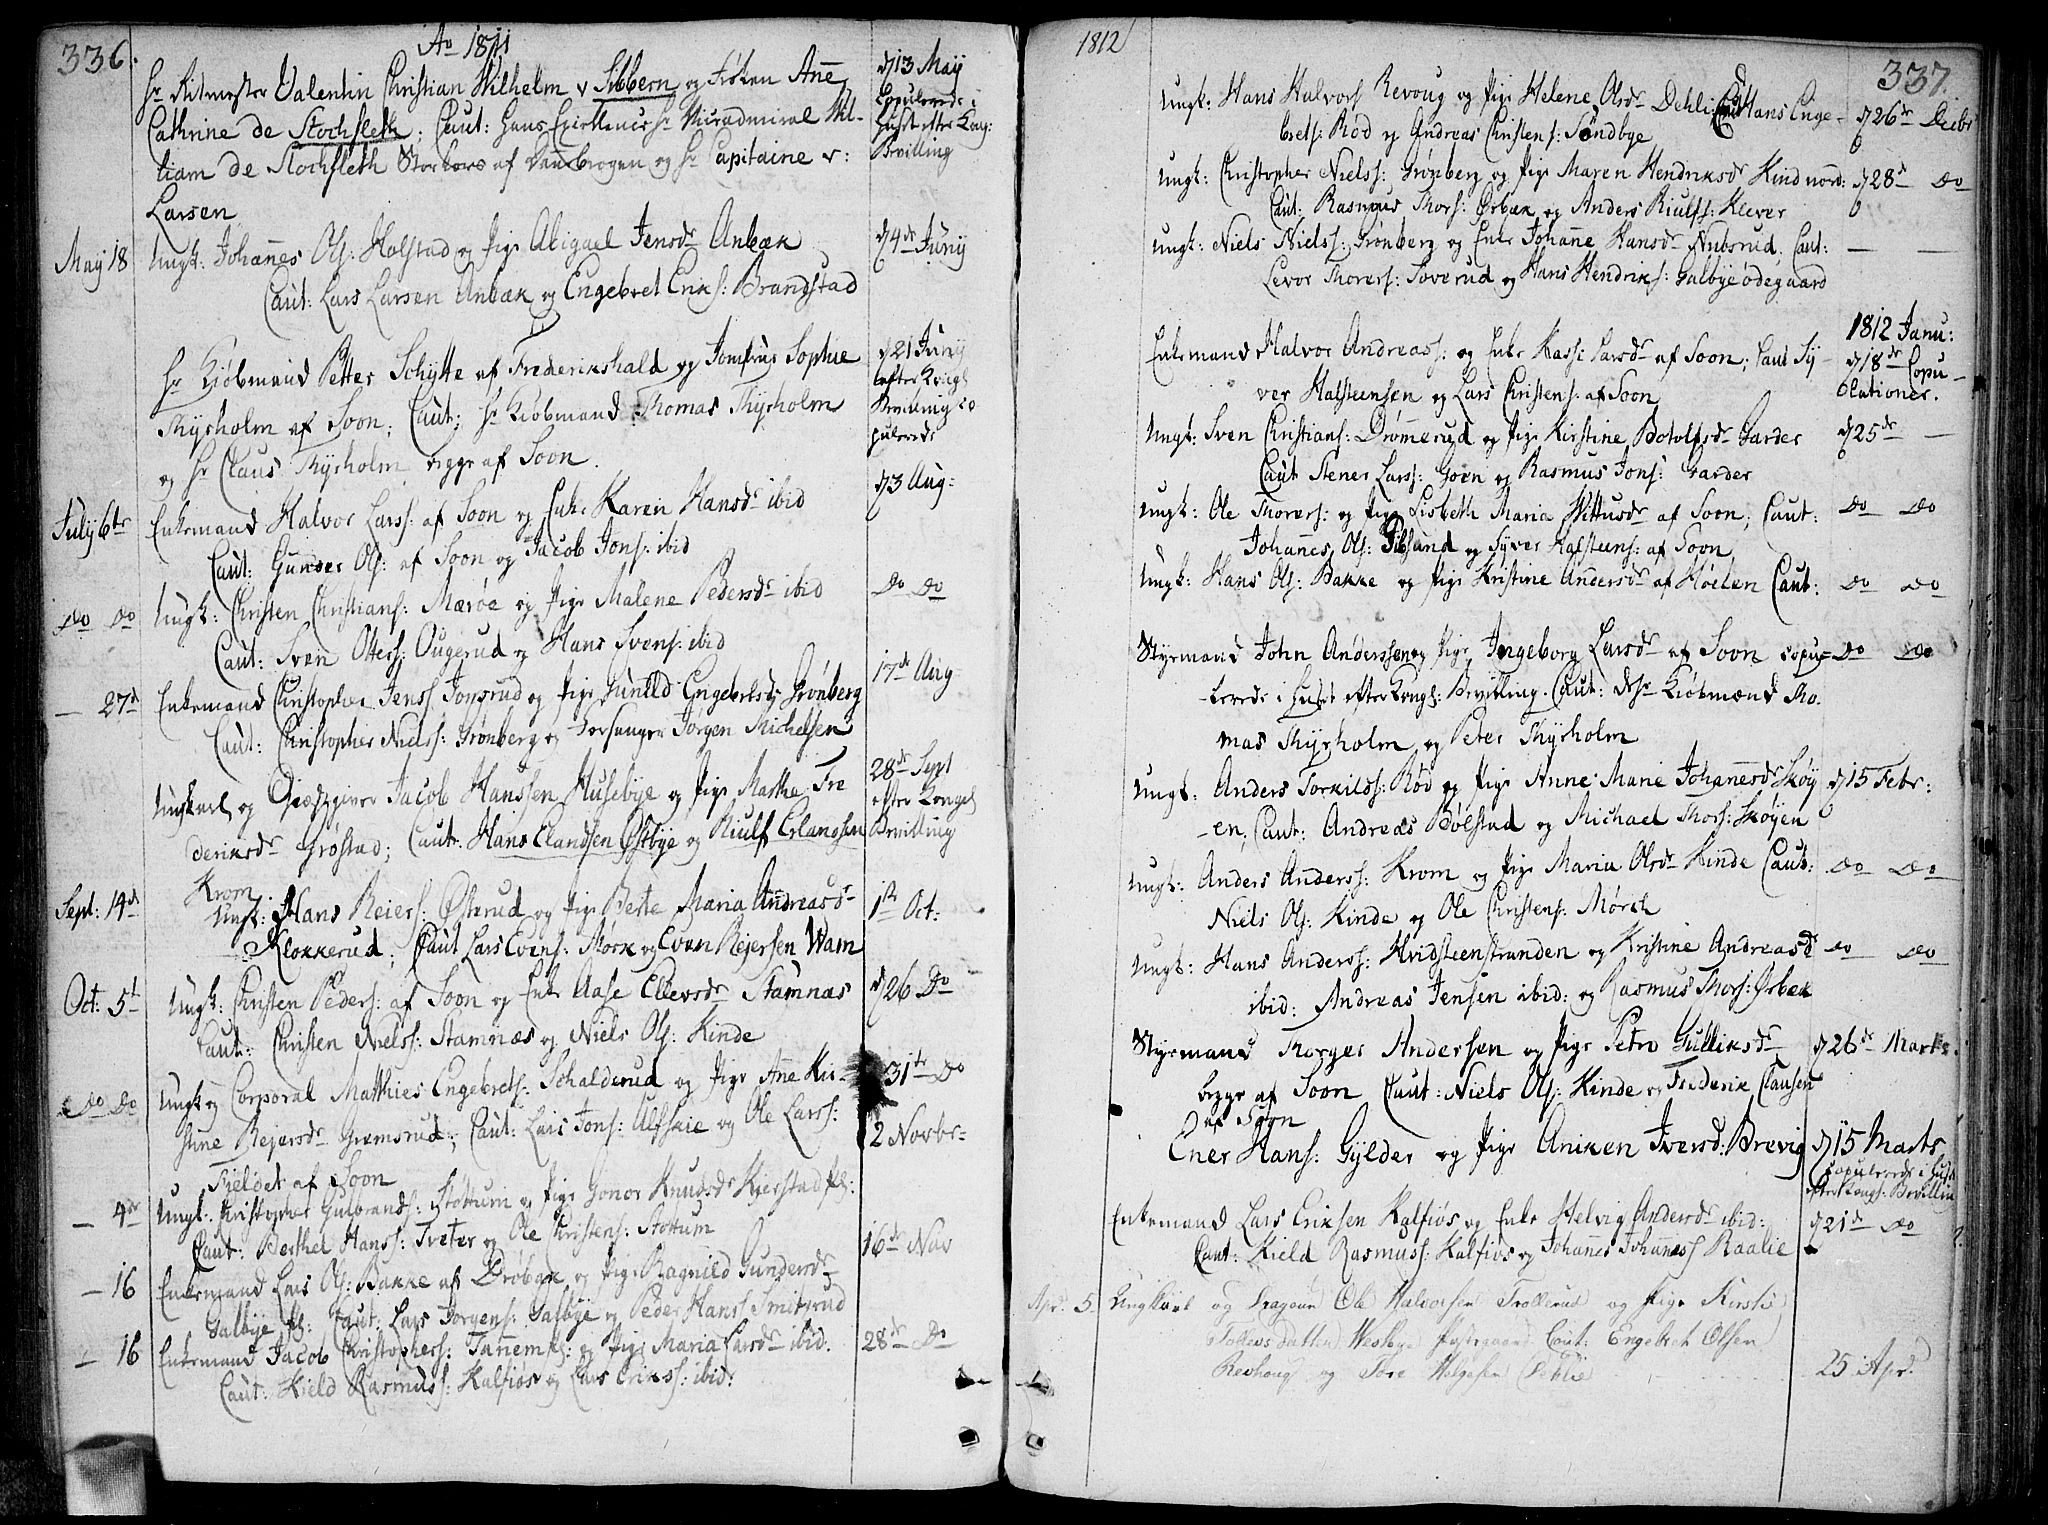 336.
Ao 1811
Hr Ritmester Valentin Christian Wilhelm v Sibbern og Frøken Ane
Cathrine de Stochfleth; Caut: Hans Excellence Hr Viceadmiral Wil-
liam de Stochfleth Storkors af Dannebrogen og Hr Capitaine v:
Larsen
d 13 May
Copulerede i
Huset efter Kong:
Bevilling
May 18
Ungk: Johannes Ols: Holstad og Pige Abigael Jensdr Anbæk
d 4de Juny
Caut: Lars Larsen Anbæk og Engebret Eriks: Brandstad
Hr Kiøbmand Petter Schytte af Frederikshald og Jomfrue Sophie
Thyrholm af Soon; Caut; Hr Kiøbmand Thomas Thyrholm
og Hr Claus Thyrholm begge af Soon.
d 21 Juny
efter Kongl
Bevilling co
pulerede
July 6te
Enkemand Halvor Larss: af Soon og Enke Karen Hansdr ibid
d 3 Aug:
Caut: Gunder Ols: af Soon og Jacob Jons: ibid
Do Do
Ungk: Christen Christians: Mærøe og Pige Malene Pedersdr ibid
Do Do
Caut: Sven Otters: Ougerud og Hans Svens: ibid
— 27d
Enkemand Christopher Jenss Jonsrud og Pige Gunild Engebretsdr Grønberg
17de Aug
Caut: Christopher Nielss: Grønberg og Forsanger Jørgen Michelsen
Ungkarl og Giestgiver Jacob Hanssen Husebye og Pige Mathe Fre
deriksdr Grøstad; Caut: Hans Clandsen Østbye og Riulf Erlandsen
Krom.
28de Sept
efter Kongel
Bevilling
Sept: 14d
Ungk: Hans Reiers: Østerud og Pige Berte Maria Andreasd-
1ste Oct:
Klokkerud; Caut Lars Evens: Mork og Even Rejersen Wam
Oct: 5t
Ungk: Christen Peders: af Soon og Enke Aase Ellevsdr Stamnæs
d 26 Do
Caut: Christen Nielss: Stamnæs og Niels Ols: Kinde
Do Do
Ungk og Corporal Matthies Engebrets: Schalderud og Pige Ane Kir-
31te Do
stine Rejersdr Gremsrud; Caut: Lars Jons: Ulfskie og Ole Larss:
Fieldet af Soon
2 Novbr
— 4de
Ungk: Christopher Gulbrands: Stottum og Pige Gonor Knudsdr Kjerstad
Caut: Berthel Hanss: Tveter og Ole Christens: Stottum
16de Nov
— 16
Enkemand Lars Ols: Bakke af Drøbak og Pige Ragnild Gundersdr
Galbye Caut: Lars Jørgens: Galbye og Peder Hanss Smihrud
— 16
Enkemand Jacob Christophers: Tannem og Pige Maria Larsdr ibid.
28de Do
Caut: Kield Rasmuss: Kalfiøs og Lars Erikss: ibid:
1812
337.
Ungk: Hans Halvors Revoug og Pige Helene Olsdr Dehli Caut Hans Enge-
d 26de Decbr
brets: Rød og Andreas Christens: Sundbye
Ungk: Christopher Nielss: Grønberg og Pige Maren Hendriksdr Kind nord:
d 28d Do
Caut: Rasmus Thors: Ørbæk og Anders Riulfs: Klever
Ungk: Niels Nielss: Grønberg og Enke Johanne Hansdr Nubsrud; Caut:
— —
Levor Thorers: Soverud og Hans Hendriks: Galbyeødegaard
1812 Janu:
Enkemand Halvor Andreass: og Enke Kassi Larsdr af Soon; Caut Sy-
d 18de Copu-
ver Halsteensen og Lars Christens: af Soon
lationer.
Ungk: Sven Christians: Drømmerud og Pige Kirstine Botolfsdr Garder
d 25de —
Caut Stener Larss: Goen og Rasmus Jons: Garder
Ungk: Ole Thorers: og Pige Lisbeth Maria Wittusdr af Soon; Caut:
Do Do
Johannes Ols: Sibsund og Syver Halsteens: af Soon
Ungk: Hans Ols: Bakke og Pige Kristine Andersdr af Høelen Caut:
Do Do
Styrmand John Anderssen og Pige Ingeborg Larsdr af Soon copu-
Do Do
lerede i Huset efter Kongl: Bevilling. Caut: dHr Kiøbmænd Tho.
mas Thyrholm og Peter Thyrholm
Ungk: Anders Torkilss: Rød og Pige Anne Marie Johannesdr Skøy
d 15 Febr:
-en; Caut: Andreas Bølstad og Michael Thors: Skøyen
Ungk: Anders Anderss: Krom og Pige Maria Olsdr Kinde Caut:
Do Do
Niels Ols: Kinde og Ole Christens: Mørch
Ungk: Hans Anderss: Hvidsteenstranden og Kristine Andreasdr
Do Do
ibid: Andreas Jensen ibid: og Rasmus Thors: Ørbæk
Styrmand Thorger Andersen og Pige Petro Gulliksdr
d 26de Marts.
begge af Soon Caut: Niels Ols: Kinde og Frederik Clausen
af Soon
Ener Hans: Gylder og Pige Aniken Iversd: Brevig
d 15 Marts
copulerede i Huset
efter Kongl: Bevilling
Enkemand Lars Eriksen Kalfiøs og Enke Helvig Andersdr ibid:
d 21de Do
Caut: Kield Rasmuss: Kalfiøs og Johannes Johanness Raalie
Apr. 5.
Ungkarl og Dragoun Ole Halvorsen Trollerud og Pige Kirsti
Tollevsdatter Westbye Caut: Engebret Olsen
Revhoug og Tore Helgesen Dehlie
25 Apr.